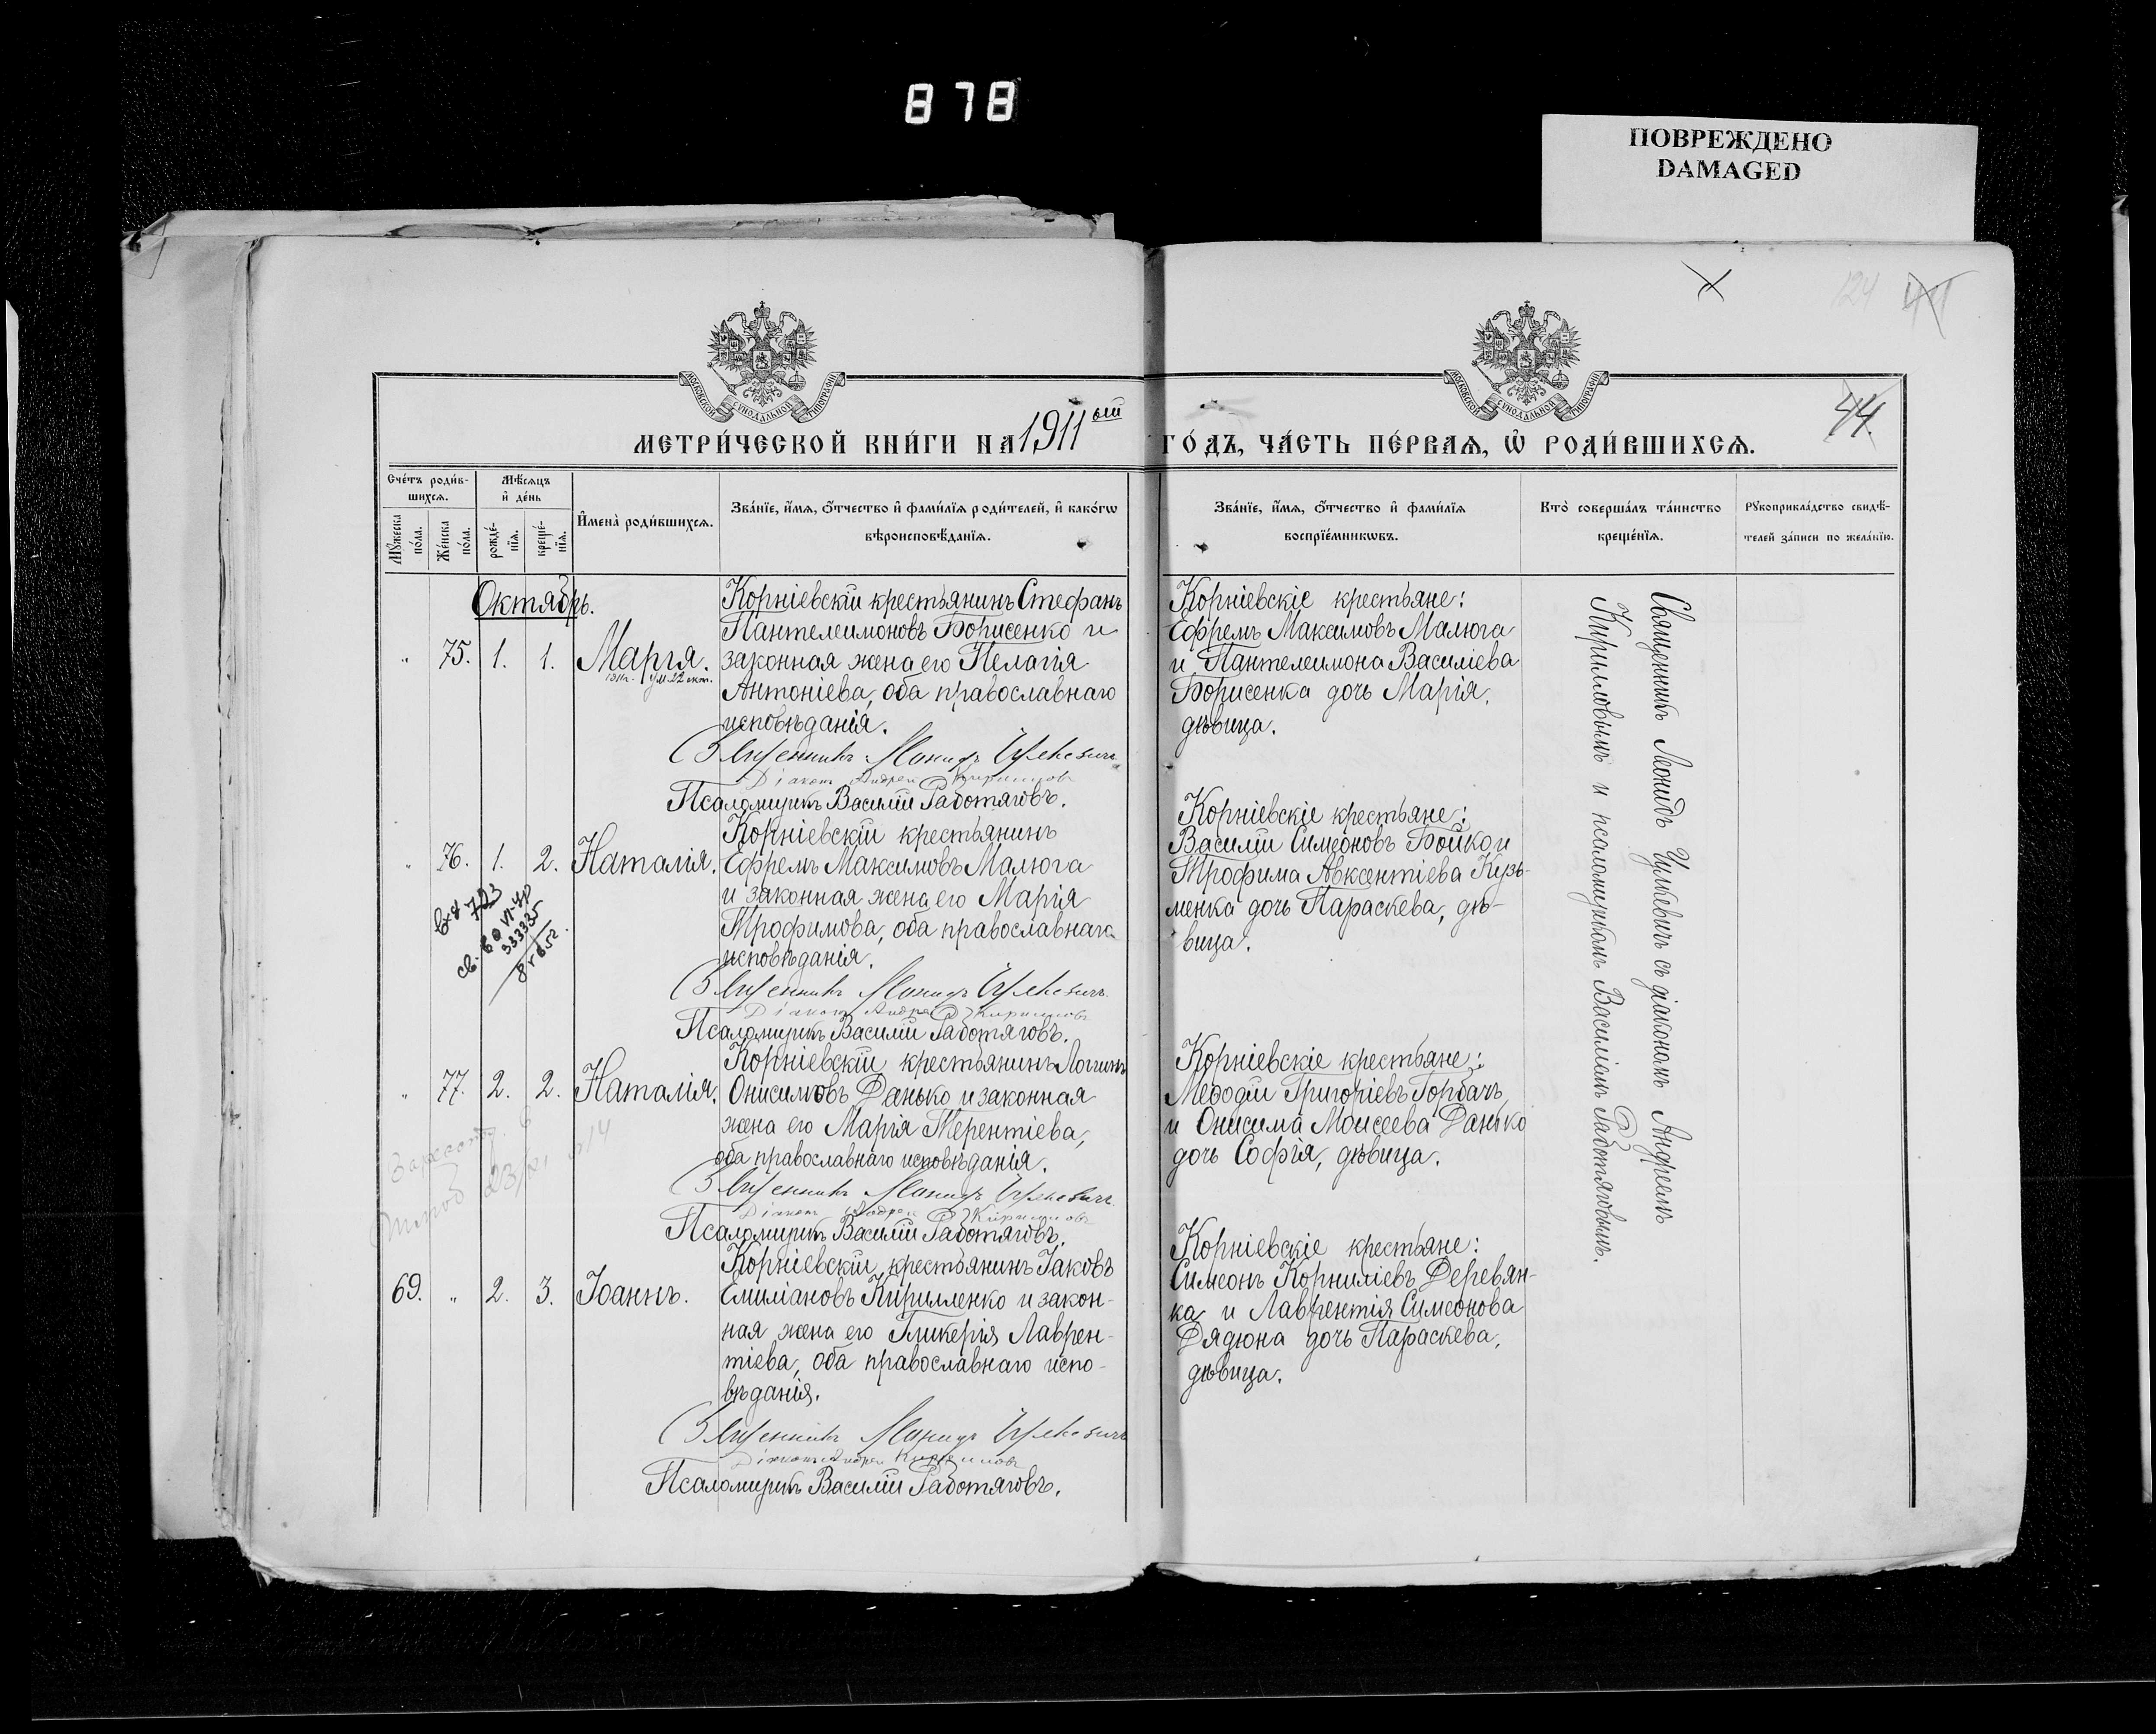 878
ПОВРЕЖДЕНО
DAMAGED
124
44.
МОСКОВСКОЙ СѴНОДАЛЬНОЙ ТИПОГРАФІИ
МОСКОВСКОЙ СѴНОДАЛЬНОЙ ТИПОГРАФІИ
МЕТРИ́ЧЕСКОЙ КНИ́ГИ НА 1911ый ГО́ДЪ, ЧА́СТЬ ПЕ́РВАѦ, Ѡ҆ РОДИ́ВШИХСѦ.
Сче́тъ роди́в-
шихсѧ.
Мꙋ́жеска по́ла.
Же́нска по́ла.
Мѣ́сѧцъ
и҆ де́нь
рожде́-
нїѧ.
креще́-
нїѧ.
И҆мена̀ роди́вшихсѧ.
Зва́нїе, и҆́мѧ, ѻ҆́тчество и҆ фами́лїѧ роди́телей, и҆ како́гѡ
вѣроисповѣ́данїѧ.
Зва́нїе, и҆́мѧ, ѻ҆́тчество и҆ фами́лїѧ
воспрїе́мникѡвъ.
Кто̀ соверша́лъ та́инство
креще́нїѧ.
Рꙋкоприкла́дство свидѣ́-
телей за́писи по жела́нїю.
Октябрь.
" 75. 1. 1. Марія.
1911г. ум. 22 окт.
Корніевскій крестьянинъ Стефанъ
Пантелеимоновъ Борисенко и
законная жена его Пелагія
Антоніева, оба православнаго
исповѣданія.
Священникъ Леонидъ Цулкевичъ
Діаконъ Андрей Кирилловъ
Псаломщикъ Василій Работяговъ.
Корніевскіе крестьяне:
Ефремъ Максимовъ Малюга
и Пантелеимона Василіева
Борисенка дочь Марія,
дѣвица.
" 76. 1. 2. Наталія.
вх 8 723
333335
Корніевскій крестьянинъ
Ефремъ Максимовъ Малюга
и законная жена его Марія
Трофимова, оба православнаго
исповѣданія.
Священникъ Леонидъ Цулкевичъ
Діаконъ Андрей Кирилловъ
Псаломщикъ Василій Работяговъ.
Корніевскіе крестьяне:
Василій Симеоновъ Бойко и
Трофима Авксентіева Кузь-
менка дочь Параскева, дѣ-
вица.
" 77. 2. 2. Наталія.
Корніевскій крестьянинъ Логгинъ
Онисимовъ Данько и законная
жена его Марія Терентіева,
оба православнаго исповѣданія.
Священникъ Леонидъ Цулкевичъ
Діаконъ Андрей Кирилловъ
Псаломщикъ Василій Работяговъ.
Корніевскіе крестьяне:
Меѳодій Григоріевъ Горбачъ
и Онисима Моисеева Данько
дочь Софія, дѣвица.
69. " 2. 3. Іоаннъ.
Корніевскій крестьянинъ Іаковъ
Емиліановъ Кирилленко и закон-
ная жена его Гликерія Лаврен-
тіева, оба православнаго испо-
вѣданія.
Священникъ Леонидъ Цулкевичъ
Діаконъ Андрей Кирилловъ
Псаломщикъ Василій Работяговъ.
Корніевскіе крестьяне:
Симеонъ Корниліевъ Деревян-
ка и Лаврентія Симеонова
Дядюна дочь Параскева,
дѣвица.
Священникъ Леонидъ Цулкевичъ съ діакономъ Андреемъ
Кирилловымъ и псаломщикомъ Василіемъ Работяговымъ.